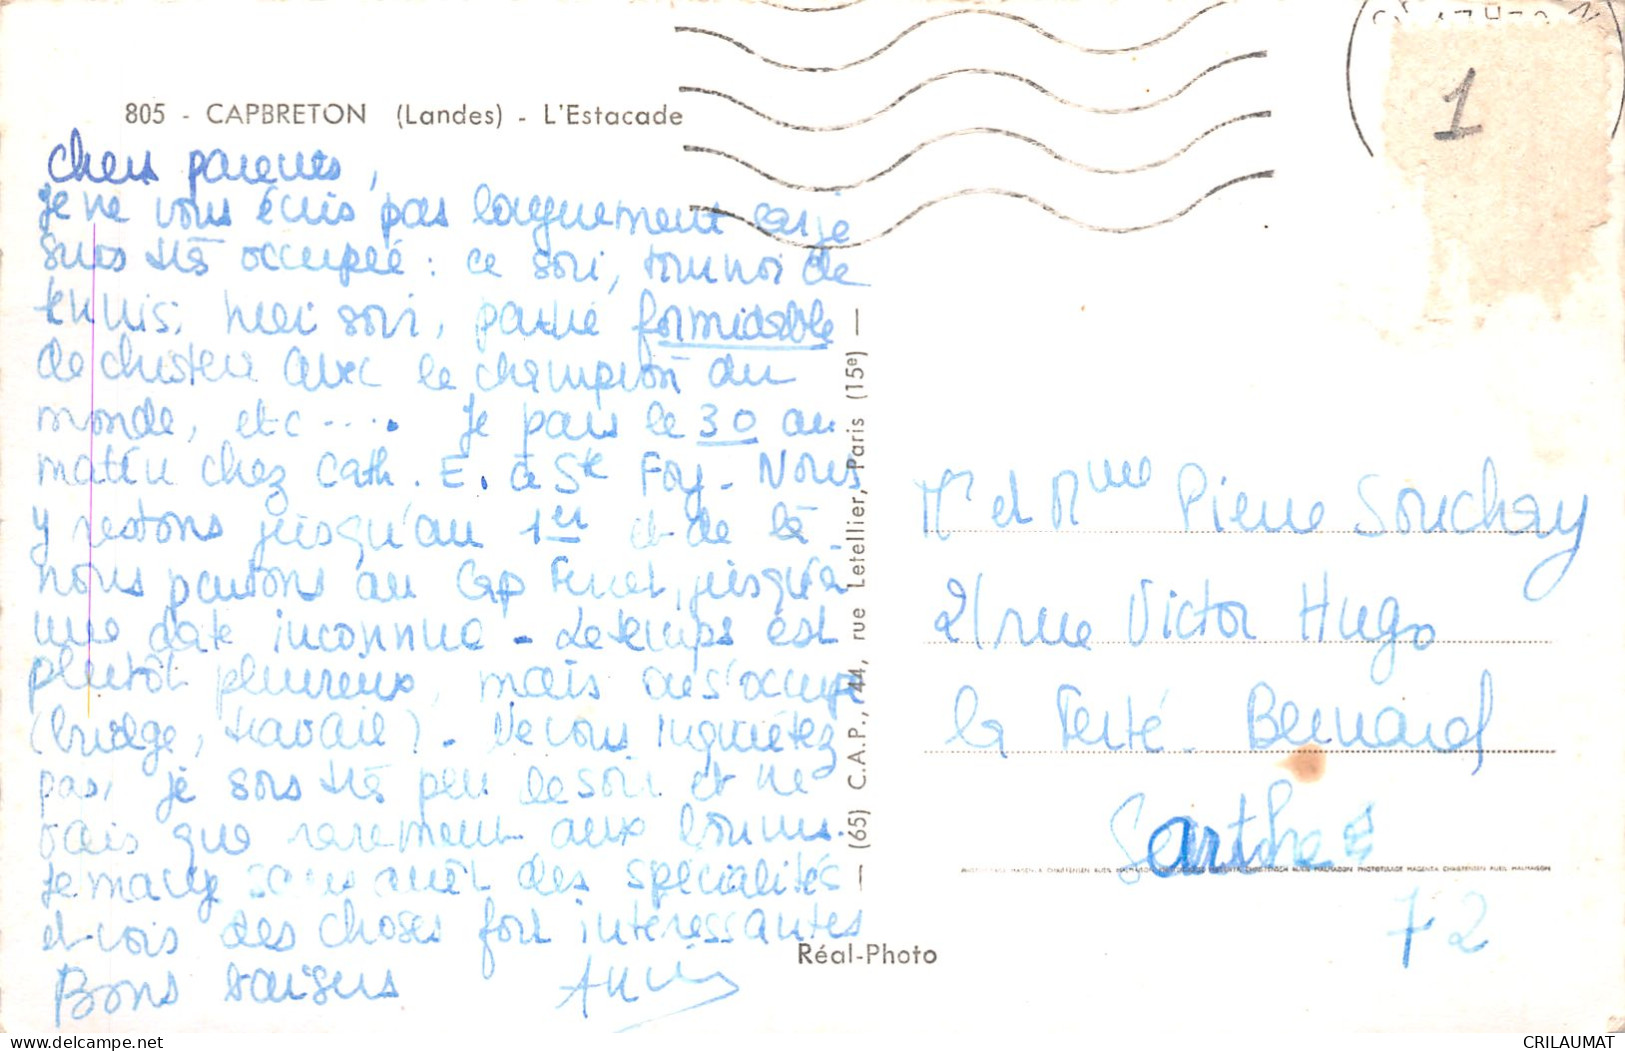 805 - CAPBRETON (Landes) - L'Estacade
1
Chers parents,
Je ne vous écris pas longuement car je
suis très occupée : ce soir, tournoi de
tennis, hier soir, partie formidable
de chistera avec le champion du
monde, etc .... Je pars le 30 au
matin chez Cath. E. à Ste Foy - Nous
y restons jusqu'au 1er et de là
nous partons au Cap Ferret, jusqu'à
une date inconnue - Le temps est
plutôt pleureux, mais on s'occupe
(bridge, travail) - Ne vous inquiétez
pas, je sors très peu le soir et ne
vais que rarement aux
Je mange sans arrêt des spécialités
et vois des choses fort intéressantes
Bons baisers
(65) C.A.P., 44, rue Letellier, Paris (15e)
Mr et Mme Pierre Souchay
21 rue Victor Hugo
la Ferté Bernard
Sarthe
72
Réal-Photo
delcampe.net
CRILAUMAT